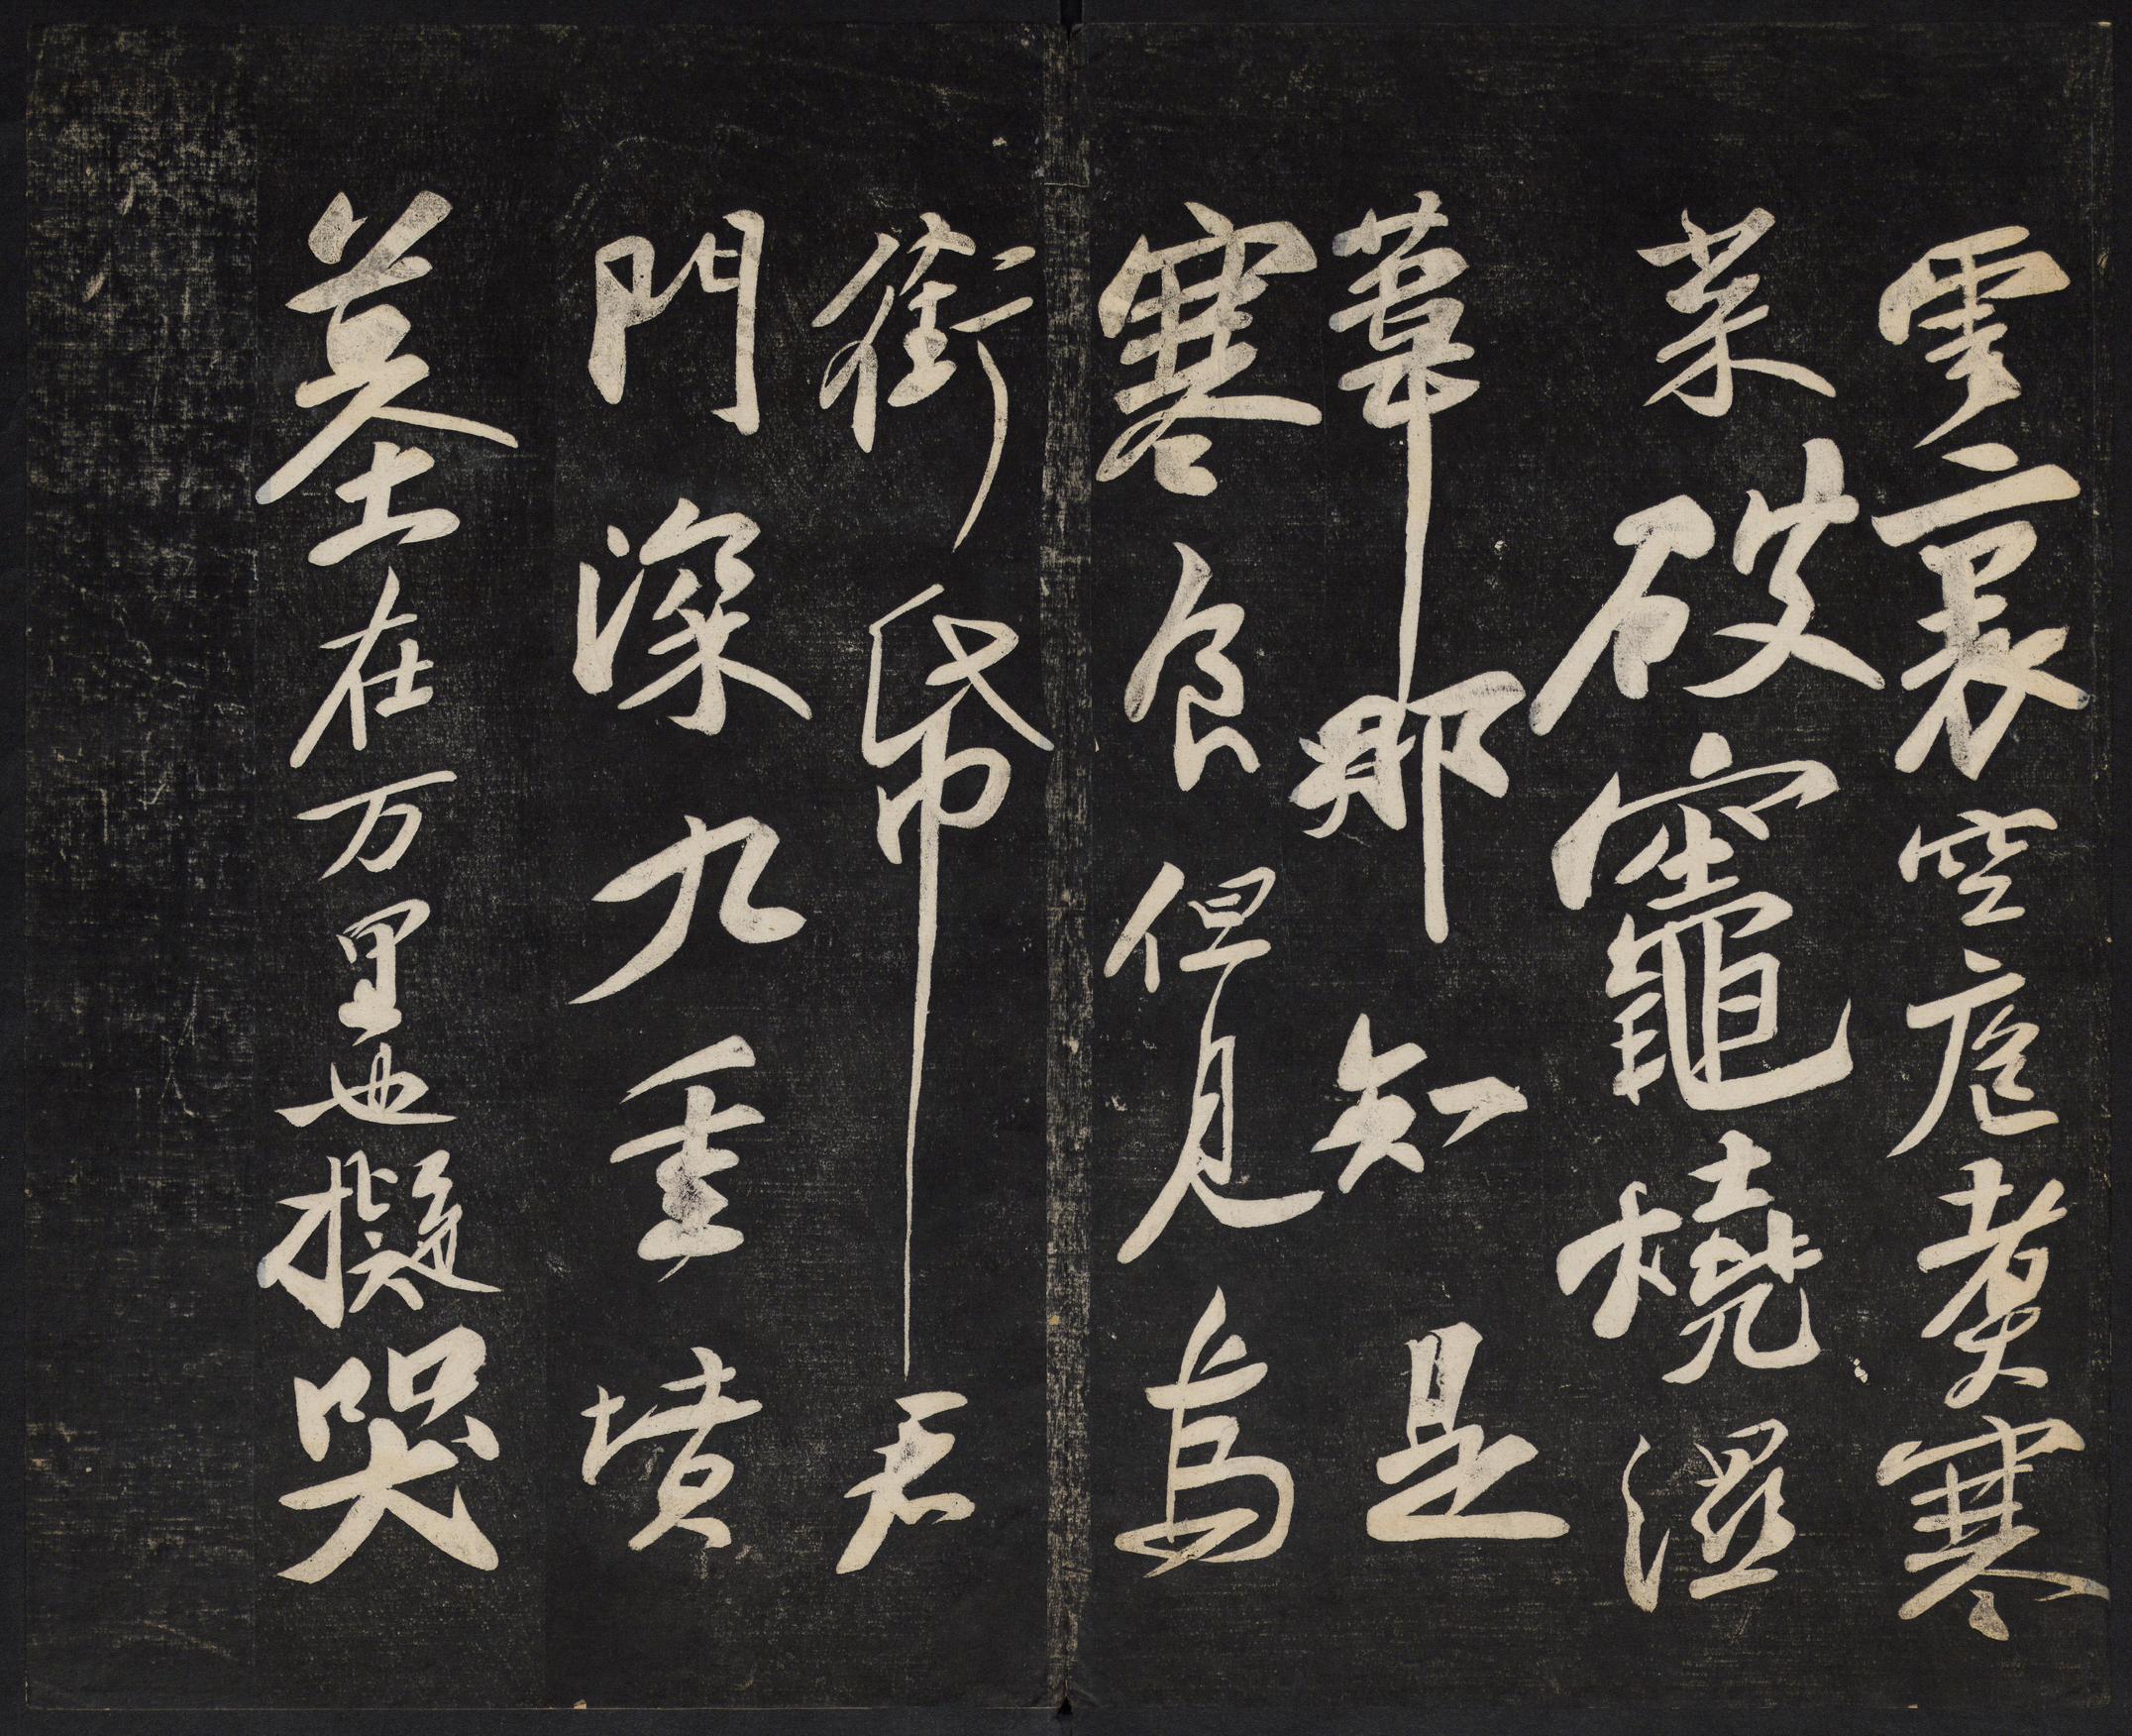 雲裏空庖煮寒
菜破竈燒濕
葦那知是
寒食但見烏
銜帋君
門深九重墳
墓在万里也擬哭